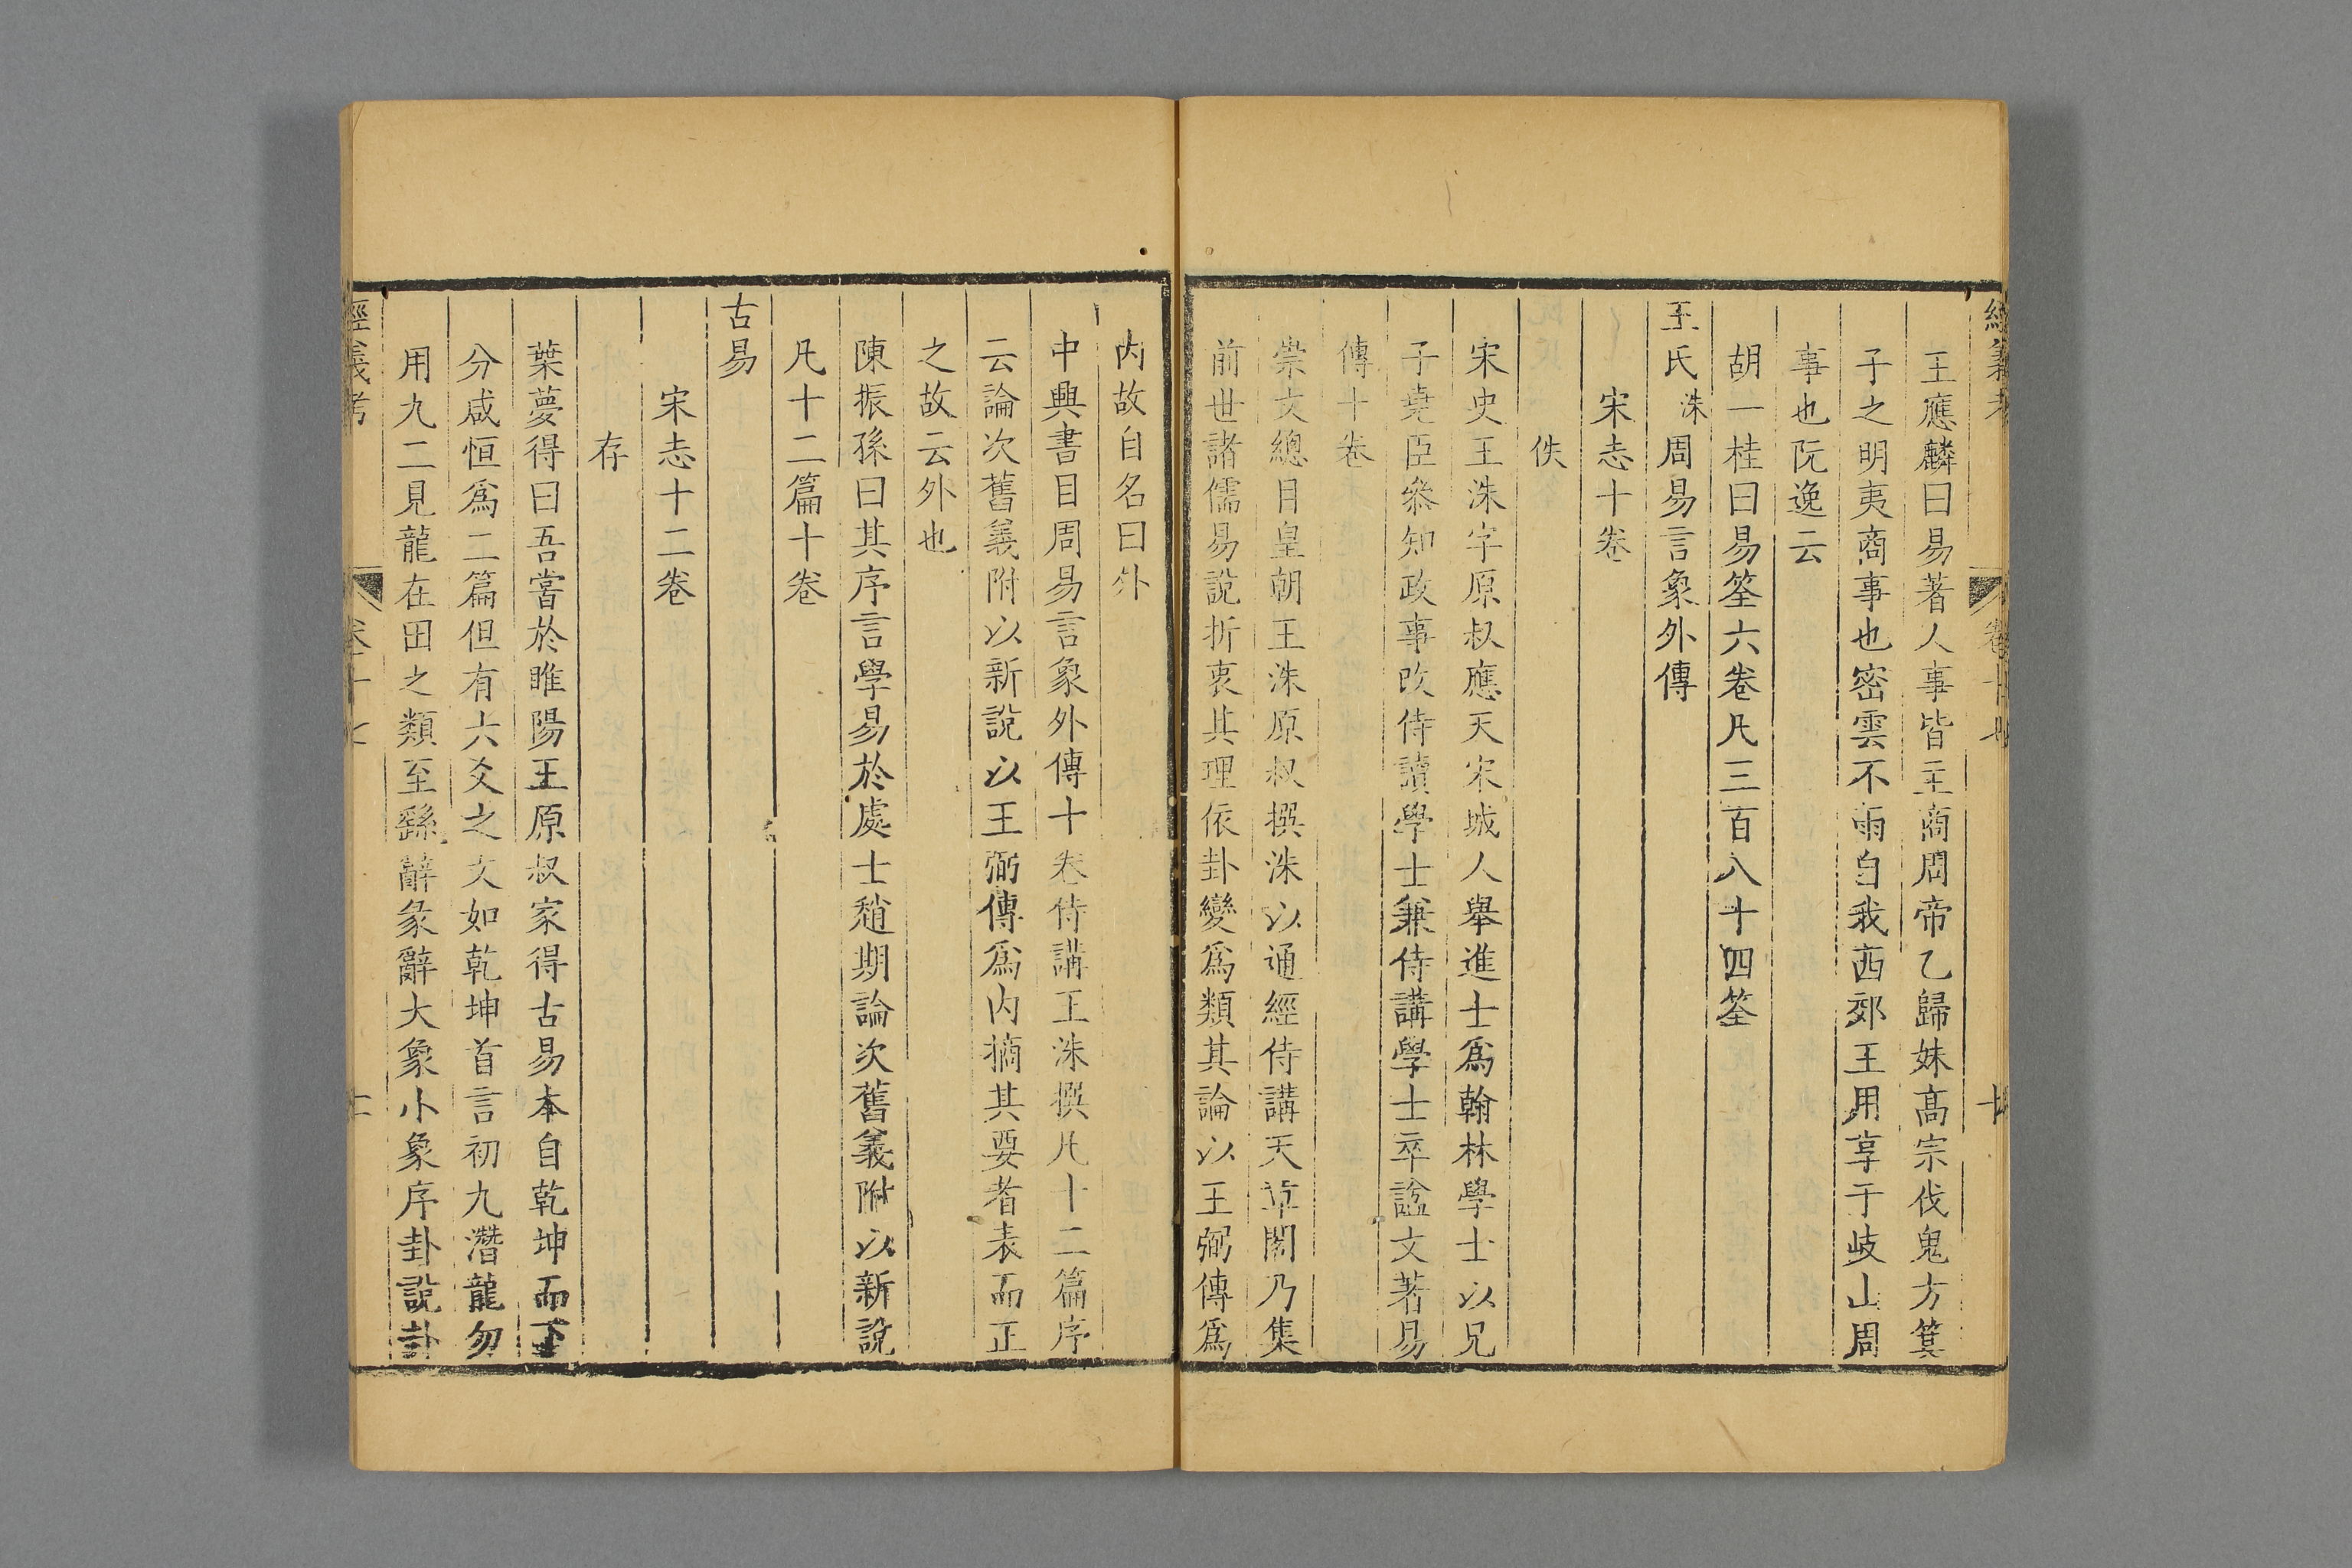 經義考 卷十七 十
王應麟曰易著人事皆主商周帝乙歸妹高宗伐鬼方箕
子之明夷商事也密雲不雨自我西郊王用享于岐山周
事也阮逸云
胡一桂曰易筌六卷凡三百八十四筌
王氏洙周易言象外傳
宋志十卷
佚
宋史王洙字原叔應天宋城人舉進士為翰林學士以兄
子堯臣叅知政事改侍讀學士兼侍講學士卒諡文著易
傳十卷
崇文總目皇朝王洙原叔撰洙以通經侍講天章閣乃集
前世諸儒易說折衷其理依卦變爲類其論以王弼傳爲
內故自名曰外
中興書目周易言象外傳十卷侍講王洙撰凡十二篇序
云論次舊義附以新說以王弼傳爲內摘其要者表而正
之故云外也
陳振孫曰其序言學易於處士趙期論次舊義附以新說
凡十二篇十卷
古易
宋志十二卷
存
葉夢得曰吾嘗於睢陽王原叔家得古易本自乾坤而下
分咸恒爲二篇但有六爻之文如乾坤首言初九潛龍勿
用九二見龍在田之類至繇辭彖辭大象小象序卦說卦
經義考 卷十七